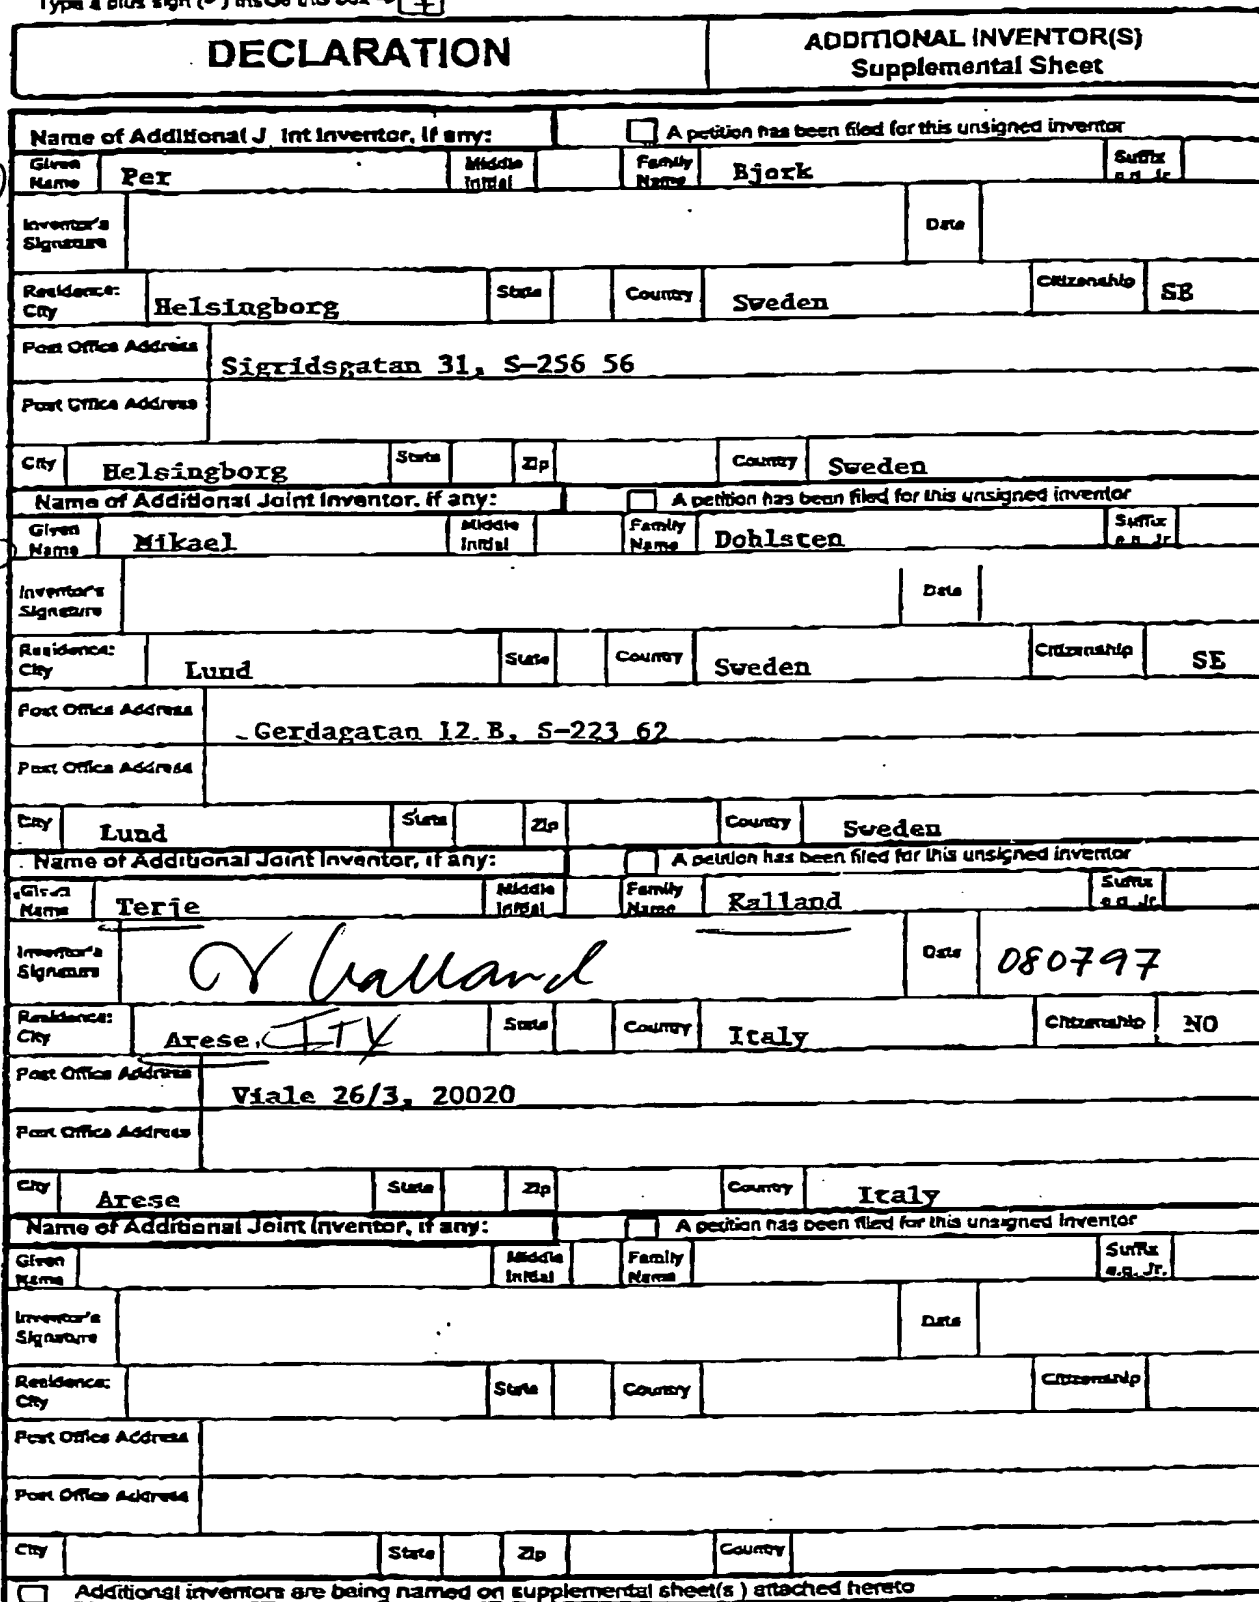 Type a plus sign (+) inside this box → +
DECLARATION
ADDITIONAL INVENTOR(S)
Supplemental Sheet
Name of Additional J int Inventor, if any: A petition has been filed for this unsigned inventor
Given Name Per Middle Initial Family Name Bjork Suffix e.g. Jr.
Inventor's Signature Date
Residence: City Helsingborg State Country Sweden Citizenship SE
Post Office Address Sigridsgatan 31, S-256 56
Post Office Address
City Helsingborg State Zip Country Sweden
Name of Additional Joint Inventor, if any: A petition has been filed for this unsigned inventor
Given Name Mikael Middle Initial Family Name Dohlsten Suffix e.g. Jr
Inventor's Signature Date
Residence: City Lund State Country Sweden Citizenship SE
Post Office Address Gerdagatan 12 B, S-223 62
Post Office Address
City Lund State Zip Country Sweden
Name of Additional Joint Inventor, if any: A petition has been filed for this unsigned inventor
Given Name Terje Middle Initial Family Name Kalland Suffix e.g. Jr.
Inventor's Signature Kalland Date 080797
Residence: City Arese, ITX State Country Italy Citizenship NO
Post Office Address Viale 26/3, 20020
Post Office Address
City Arese State Zip Country Italy
Name of Additional Joint Inventor, if any: A petition has been filed for this unsigned inventor
Given Name Middle Initial Family Name Suffix e.g. Jr.
Inventor's Signature Date
Residence: City State Country Citizenship
Post Office Address
Post Office Address
City State Zip Country
Additional inventors are being named on supplemental sheet(s ) attached hereto